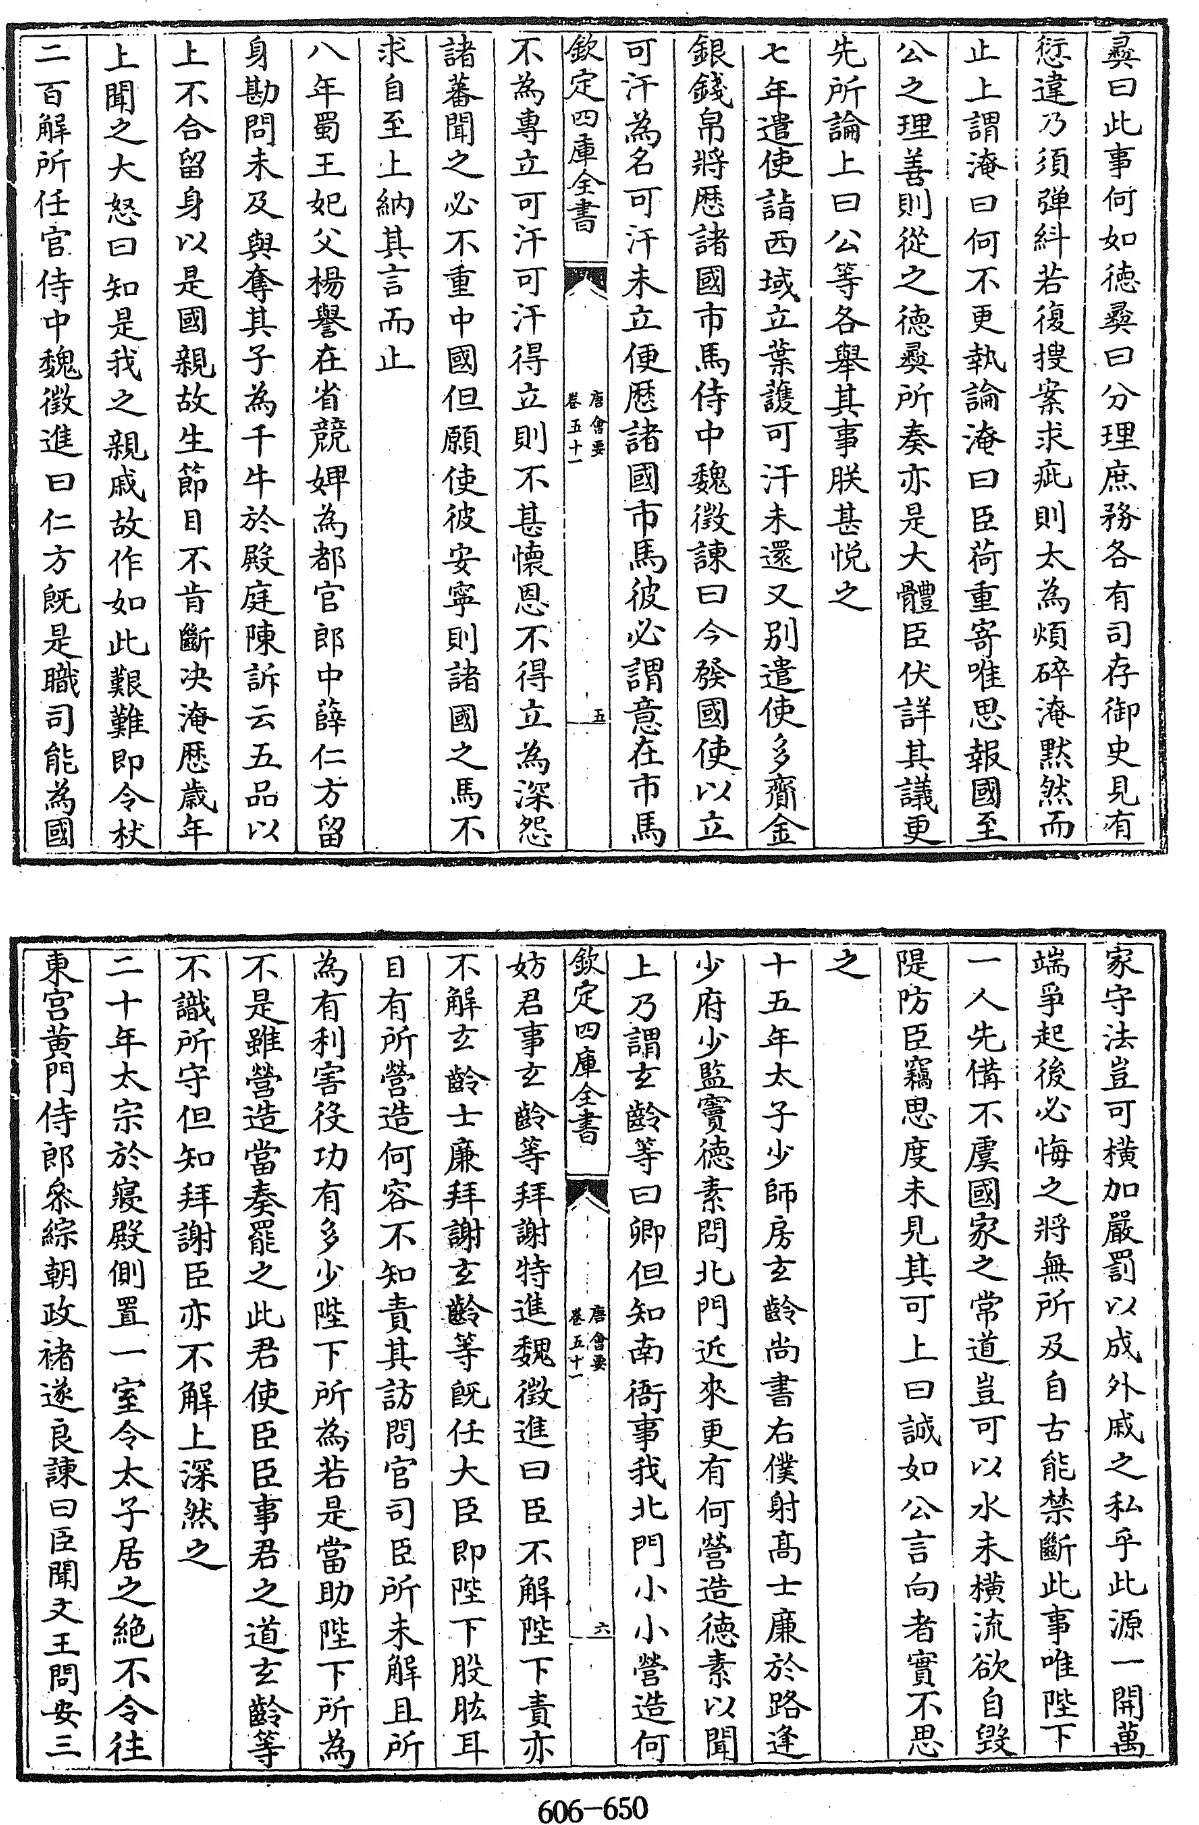 彞曰此事何如德彞曰分理庶務各有司存御史見有
愆違乃須弹糾若復搜案求疵則太為煩碎淹黙然而
止上謂淹曰何不更執論淹曰臣荷重寄唯思報國至
公之理善則從之德彞所奏亦是大體臣伏詳其議更
先所論上曰公等各舉其事朕甚悦之
七年遣使詣西域立葉護可汗未還又别遣使多齎金
銀錢帛將厯諸國市馬侍中魏徵諫曰今發國使以立
可汗為名可汗未立便厯諸國市馬彼必謂意在市馬
欽定四庫全書
唐會要
卷五十一
五
不為專立可汗可汗得立則不甚懐恩不得立為深怨
諸蕃聞之必不重中國但願使彼安寧則諸國之馬不
求自至上納其言而止
八年蜀王妃父楊譽在省競婢為都官郎中薛仁方留
身勘問未及與奪其子為千牛於殿庭陳訴云五品以
上不合留身以是國親故生節目不肯斷决淹厯歳年
上聞之大怒曰知是我之親戚故作如此艱難即令杖
二百解所任官侍中魏徵進曰仁方旣是職司能為國
家守法豈可横加嚴罰以成外戚之私乎此源一開萬
端爭起後必悔之將無所及自古能禁斷此事唯陛下
一人先備不虞國家之常道豈可以水未横流欲自毀
隄防臣竊思度未見其可上曰誠如公言向者實不思
之
十五年太子少師房玄齡尚書右僕射髙士廉於路逢
少府少監竇德素問北門近來更有何營造德素以聞
上乃謂玄齡等曰卿但知南衙事我北門小小營造何
欽定四庫全書
唐會要
卷五十一
六
妨君事玄齡等拜謝特進魏徵進曰臣不解陛下責亦
不解玄齡士廉拜謝玄齡等旣任大臣即陛下股肱耳
目有所營造何容不知責其訪問官司臣所未解且所
為有利害役功有多少陛下所為若是當助陛下所為
不是雖營造當奏罷之此君使臣臣事君之道玄齡等
不識所守但知拜謝臣亦不解上深然之
二十年太宗於寢殿側置一室令太子居之絶不令往
東宫黄門侍郎叅綜朝政禇遂良諫曰臣聞文王問安三
606-650